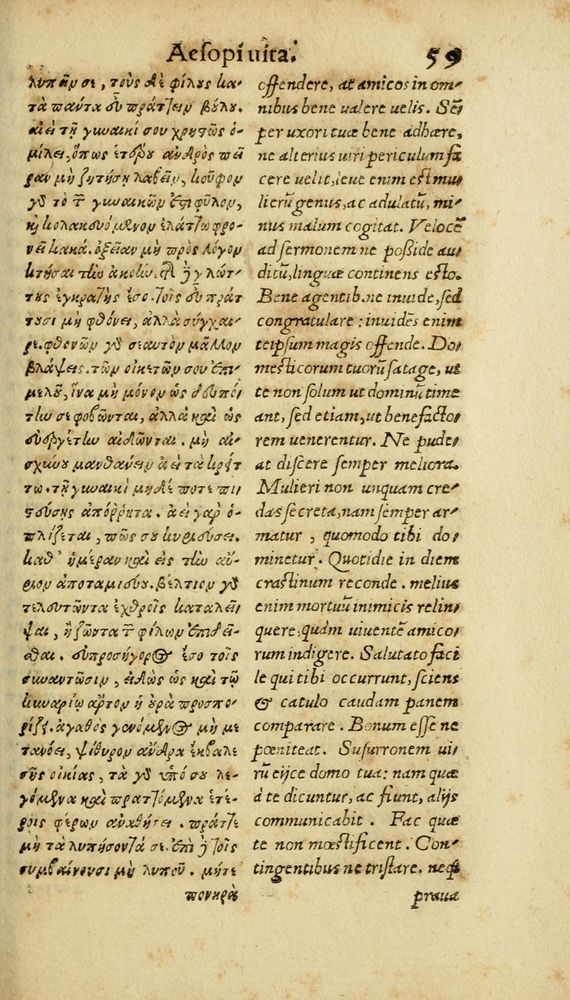 Aesopi uita. 59
λυπᾶν σε, τοὺς δὲ φίλους κα-
τὰ πάντα εὖ πράττειν βούλου.
ἀεὶ τῇ γυναικί σου χρηστῶς ὁ-
μίλει, ὅπως ἑτέρου ἀνδρὸς πεῖ
ραν μὴ ζητήσῃ λαβεῖν, κοῦφον
γὰρ τὸ τῶν γυναικῶν ἐστι φῦλον,
καὶ κολακευόμενον ἐλάττω φρο-
νεῖ κακά. ὀξεῖαν μὴ πρὸς λόγον
κτῆσαι τὴν ἀκοήν. καὶ τῆς γλώτ-
της ἐγκρατὴς ἔσο. τοῖς εὖ πράτ
τουσι μὴ φθόνει, ἀλλὰ σύγχαι-
ρε. φθονῶν γὰρ σεαυτὸν μᾶλλον
βλάψεις. τῶν οἰκετῶν σου ἐπι-
μελοῦ, ἵνα μὴ μόνον ὡς δεσπό-
την σε φοβῶνται, ἀλλὰ καὶ ὡς
εὐεργέτην αἰδῶνται. μὴ αἰ-
σχύνου μανθάνειν ἀεὶ τὰ κρείτ
τω. τῇ γυναικὶ μηδέ ποτε πι-
στεύσῃς ἀπόρρητα. ἀεὶ γὰρ ὁ-
πλίζεται, πῶς σου κυριεύσει.
καθ' ἡμέραν καὶ εἰς τὴν αὔ-
ριον ἀποταμιεύου. βέλτιον γὰρ
τελευτῶντα ἐχθροῖς καταλεῖ-
ψαι, ἢ ζῶντα τῶν φίλων ἐπιδεῖ-
σθαι. εὐπροσήγορος ἔσο τοῖς
συναντῶσιν, εἰδὼς ὡς καὶ τῷ
κυναρίῳ ἄρτον ἡ οὐρὰ προσπο-
ρίζει. ἀγαθὸς γενόμενος μὴ με
τανόει, ψίθυρον ἄνδρα ἔκβαλε
σῆς οἰκίας, τὰ γὰρ ὑπό σου λε-
γόμενα καὶ πραττόμενα ἑτέ-
ροις φέρων ἀναθήσει. πρᾶττε
μὴ τὰ λυπήσοντά σε. ἐπὶ δὲ τοῖς
συμβαίνουσι μὴ λυποῦ. μήτε
πονηρὰ
offendere, at amicos in om-
nibus bene ualere uelis. Sẽ
per uxori tuæ bene adhære,
ne alterius uiri periculum fa
cere uelit, leue enim est mu
lierũ genus, ac adulatũ, mi-
nus malum cogitat. Velocẽ
ad sermonem ne poßide au-
ditũ, linguæ continens esto.
Bene agentib. ne inuide, sed
congratulare: inuidẽs enim
teipsum magis offende. Do-
mesticorum tuorũ satage, ut
te non solum ut dominũ time
ant, sed etiam, ut benefacto-
rem uenerentur. Ne pude-
at discere semper meliora.
Mulieri non unquam cre-
das secreta, nam semper ar-
matur, quomodo tibi do-
minetur. Quotidie in diem
crastinum reconde. melius
enim mortuũ inimicis relin-
quere, quàm uiuentẽ amico-
rum indigere. Salutato faci
le qui tibi occurrunt, sciens
& catulo caudam panem
comparare. Bonum esse ne
pœniteat. Susurronem ui-
rũ eijce domo tua: nam quæ
à te dicuntur, ac fiunt, alijs
communicabit. Fac quæ
te non mœstificent. Con-
tingentibus ne tristare. neq;
praua